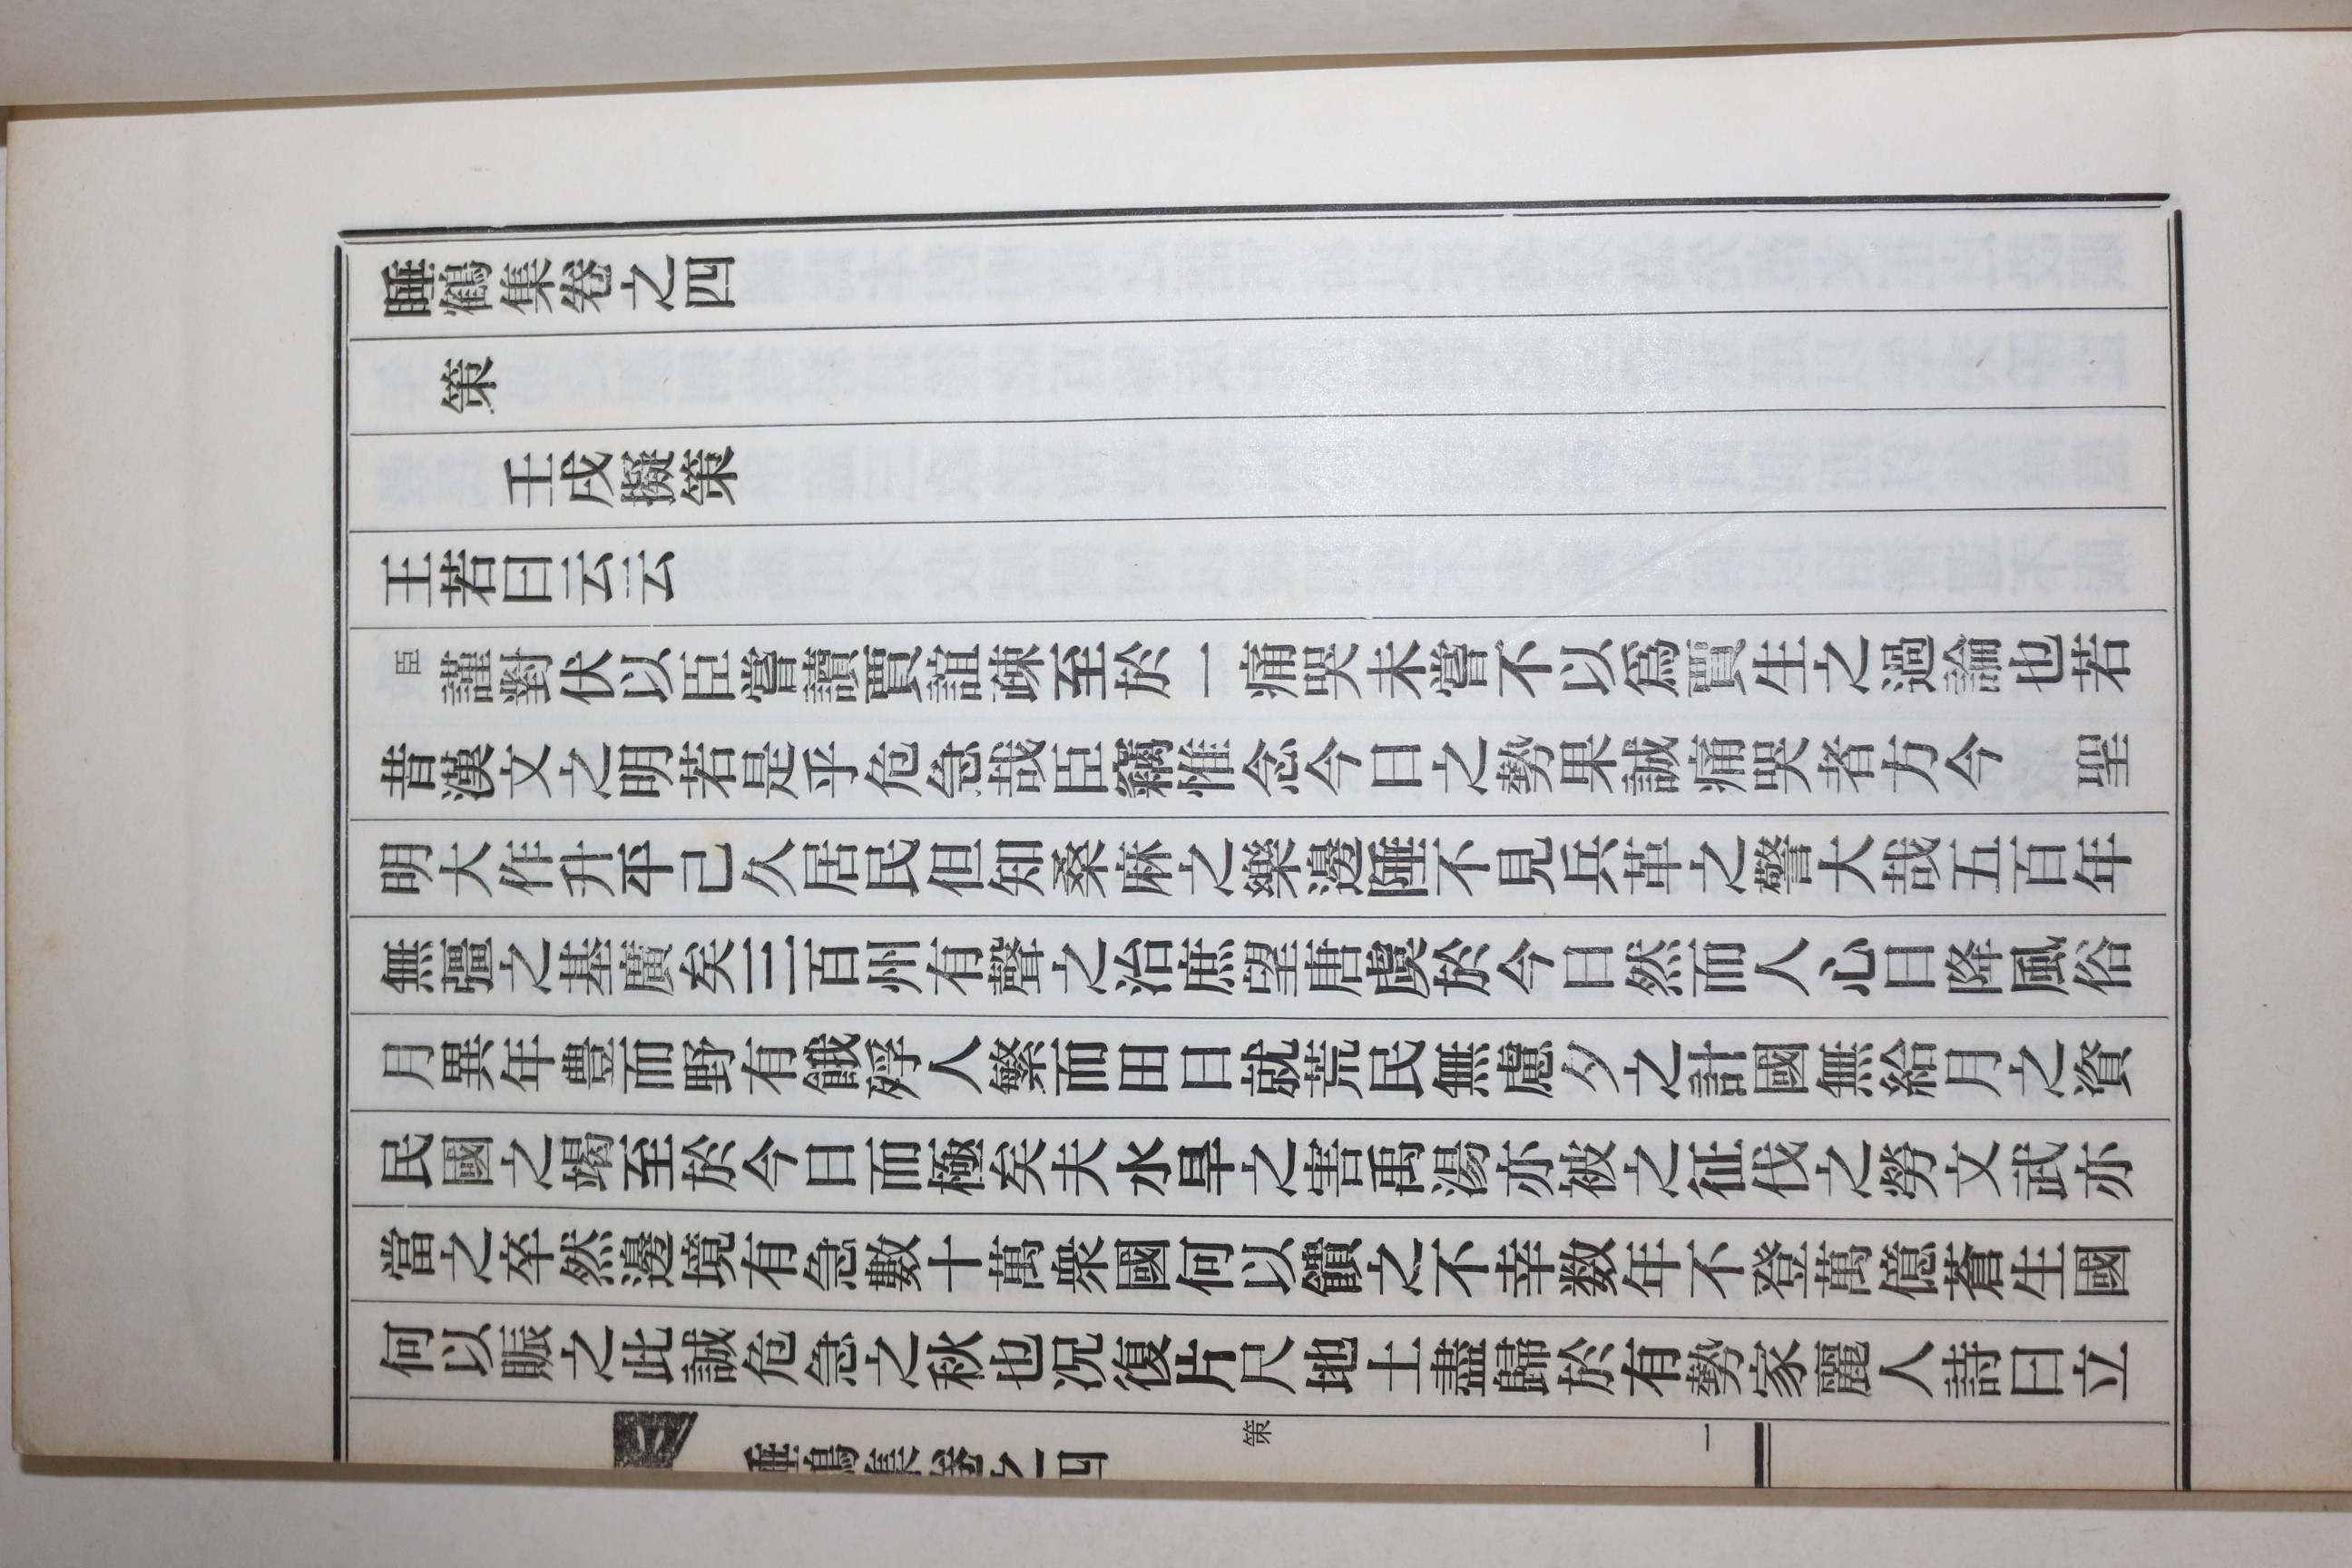 睡鶴集卷之四
策
壬戌擬策
王若曰云云
臣謹對伏以臣嘗讀賈誼疎至於一痛哭未嘗不以爲賈生之過論也若
昔漢文之明若是乎危急哉臣竊惟念今日之勢果誠痛哭者方今聖
明大作升平己久居民但知桑麻之樂邊陲不見兵革之警大哉五百年
無彊之基廣矣三百州有聲之治庶望唐虞於今日然而人心日降風俗
月異年豊而野有餓殍人繁而田日就荒民無慮夕之計國無給月之資
民國之竭至於今日而極矣夫水旱之害禹湯亦被之征伐之勞文武亦
當之卒然邊境有急數十萬衆國何以饋之不幸数年不登萬億蒼生國
何以賑之此誠危急之秋也况復片尺地土盡歸於有勢家麗人詩曰立
睡鶴集卷之四
策
一